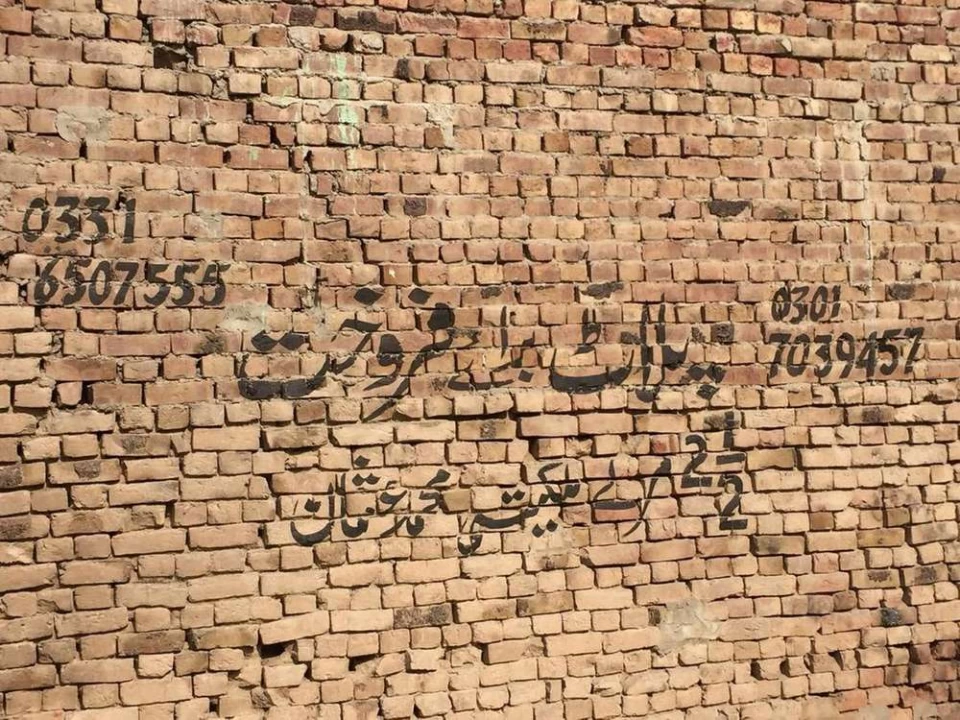 0331
6507555
0301
7039457
یہ پلاٹ برائے فروخت
2 1/2 مرلے ملکیتی محمد عثمان